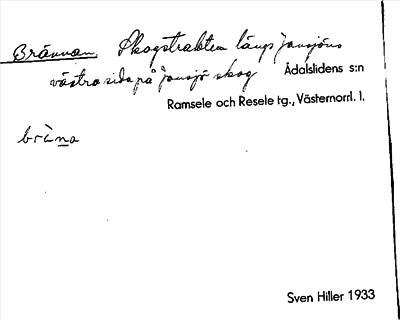 Brännan, Skogstrakten längs Jansjöns
västra sida på Jansjö skog Ådalslidens s:n
Ramsele och Resele tg., Västernorrl. l.
brὰna
Sven Hiller 1933